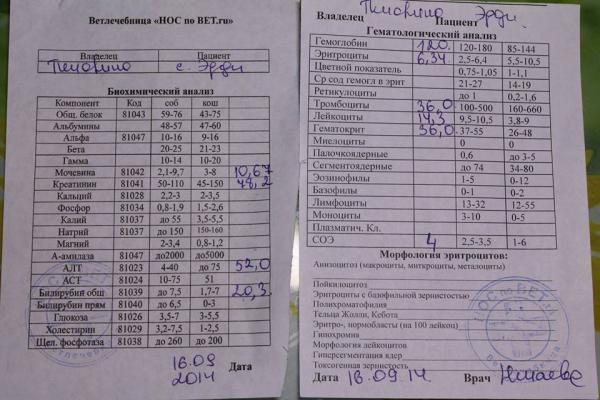 Ветлечебница «НОС по ВЕТ.ru»
Владелец Пациент
с. Эрди
Биохимический анализ
Компонент Код соб кош
Общ. белок 81043 59-76 43-75
Альбумины 48-57 47-60
Альфа 81047 10-16 9-16
Бета 20-25 21-23
Гамма 10-14 10-20
Мочевина 81042 2,1-9,7 3-8 10,67
Креатинин 81041 50-110 45-150 48,2
Кальций 81028 2,2-3 2-3,5
Фосфор 81034 0,8-1,9 1,5-2,6
Калий 81037 до 55 3,5-5,5
Натрий 81037 до 150 150-160
Магний 2-3,4 0,8-1,2
А-амилаза 81047 до2000 до5000
АЛТ 81023 4-40 до 75 52,0
АСТ 81024 10-75 51
Билирубин общ 81039 до 7,5 1,7-7 20,3
Билирубин прям 81040 до 6,5 0-3
Глюкоза 81026 3,5-7 3-5,5
Холестирин 81029 3,2-7,5 1-2,5
Щел. фосфотаза 81038 до 260 до 200
16.09 Дата
2014
Владелец Пациент Эрди
Гематологический анализ
Гемоглобин 120 120-180 85-144
Эритроциты 6,34 2,5-6,4 5,5-10,5
Цветной показатель 0,75-1,05 1-1,1
Ср сод гемогл в эрит 21-27 14-19
Ретикулоциты до 1 0,2-1,6
Тромбоциты 36,0 100-500 160-660
Лейкоциты 14,3 9,5-10,5 3,8-9
Гематокрит 36,0 37-55 26-48
Миелоциты 0 0
Палочкоядерные 0,6 до 3-5
Сегментоядерные до 74 34-80
Эозинофилы 1-5 0-12
Базофилы 0-1 0-2
Лимфоциты 13-32 12-55
Моноциты 3-10 0-5
Плазматич. Кл.
СОЭ 4 2,5-3,5 1-6
Морфология эритроцитов:
Анизоцитоз (макроциты, микроциты, металоциты)
Пойкилоцитоз
Эритроциты с базофильной зернистостью
Полихроматофилия
Тельца Жолли, Кебота
Эритро-, нормобласты (на 100 лейкоц)
Гипохромия
Морфология лейкоцитов
Гиперсегментация ядер
Токсогенная зернистость
Дата 16.09.14 Врач